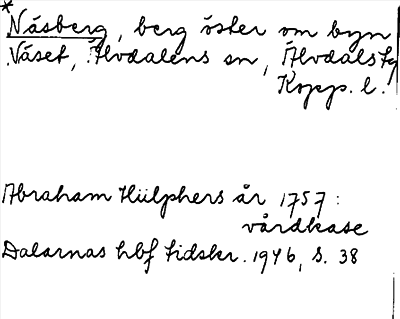 *Näsberg, berg öster om byn
Näset, Älvdalens sn, Älvdals tg
Kopp. l.
Abraham Hülphers år 1757:
vårdkase
Dalarnas hbf tidskr. 1946, s. 38